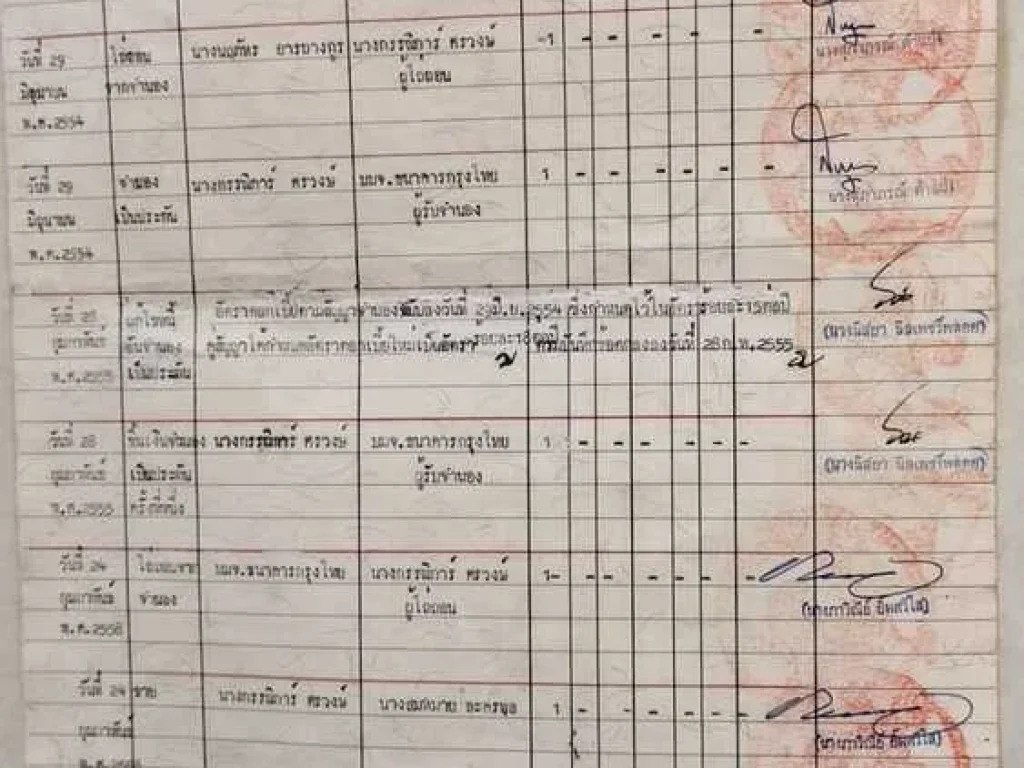 วันที่ 29 ไถ่ถอน นางนฤภัทร ยารบางกูร นางกรรณิการ์ ศรวงษ์ -1 - - - - -
มิถุนายน จากจำนอง ผู้ไถ่ถอน
พ.ศ.2554
วันที่ 29 จำนอง นางกรรณิการ์ ศรวงษ์ บมจ.ธนาคารกรุงไทย 1 - - - - - -
มิถุนายน เป็นประกัน ผู้รับจำนอง
พ.ศ.2554
วันที่ 28 แก้ไขหนี้ อัตราดอกเบี้ยตามสัญญาจำนองฉบับลงวันที่ 29มิ.ย.2554 ซึ่งกำหนดไว้ในอัตราร้อยละ15ต่อปี
กุมภาพันธ์ อันจำนอง คู่สัญญาได้กำหนดอัตราดอกเบี้ยใหม่เป็นอัตรา ร้อยละ18ต่อปี ตามบันทึกข้อตกลงลงวันที่ 28ก.พ.2555
พ.ศ.2555 เป็นประกัน
(นางนิสยา นิลเพชร์พลอย)
วันที่ 28 ขึ้นเงินจำนอง นางกรรณิการ์ ศรวงษ์ บมจ.ธนาคารกรุงไทย 1 - - - - - -
กุมภาพันธ์ เป็นประกัน ผู้รับจำนอง
พ.ศ.2555 ครั้งที่หนึ่ง
(นางนิสยา นิลเพชร์พลอย)
วันที่ 24 ไถ่ถอนจาก บมจ.ธนาคารกรุงไทย นางกรรณิการ์ ศรวงษ์ 1- - - - - -
กุมภาพันธ์ จำนอง ผู้ไถ่ถอน
พ.ศ.2558
วันที่ 24 ขาย นางกรรณิการ์ ศรวงษ์ 1 - - - - - -
กุมภาพันธ์